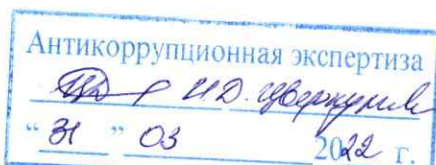 Антикоррупционная экспертиза
И.Д.
“ 31 ” 03 2022 г.